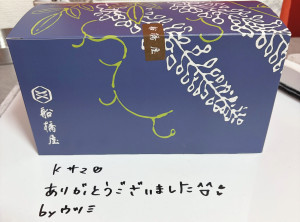 船橋屋
船橋屋
ありがとうございました
by ウツミ